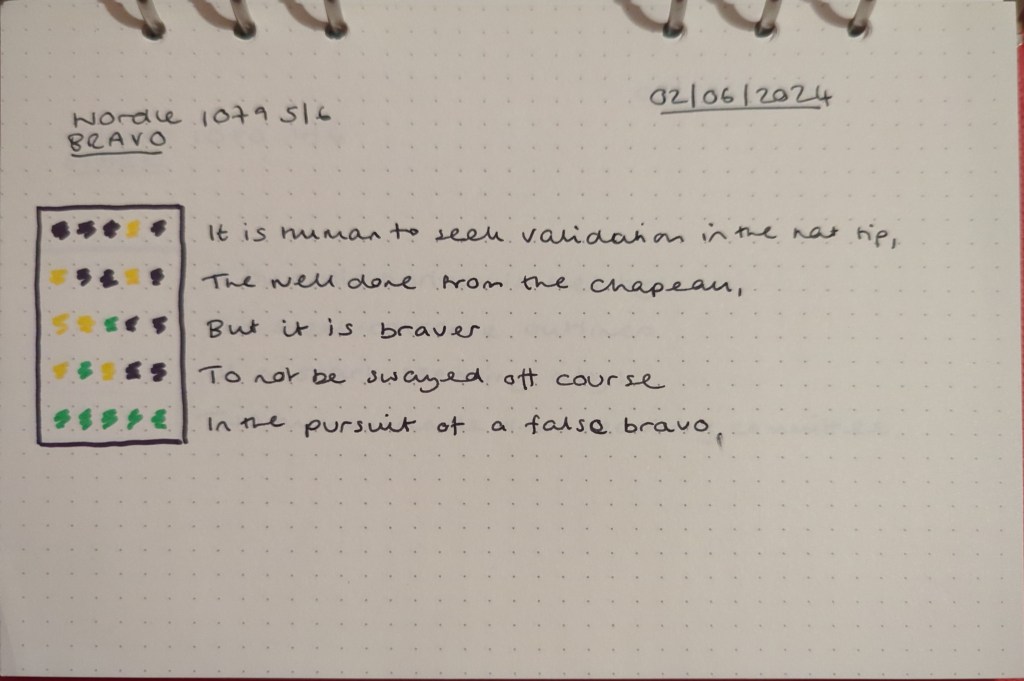 Wordle 1079 5/6
02/06/2024
BRAVO
It is human to seek validation in the hat tip,
The well done from the chapeau,
But it is braver
To not be swayed off course
In the pursuit of a false bravo.